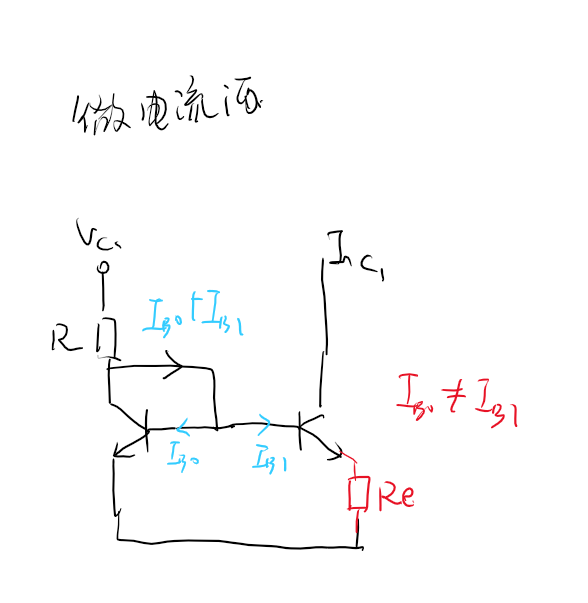 微电流源
Vc.
Ic1
R
IB0+IB1
IB0≠IB1
IB0
IB1
Re